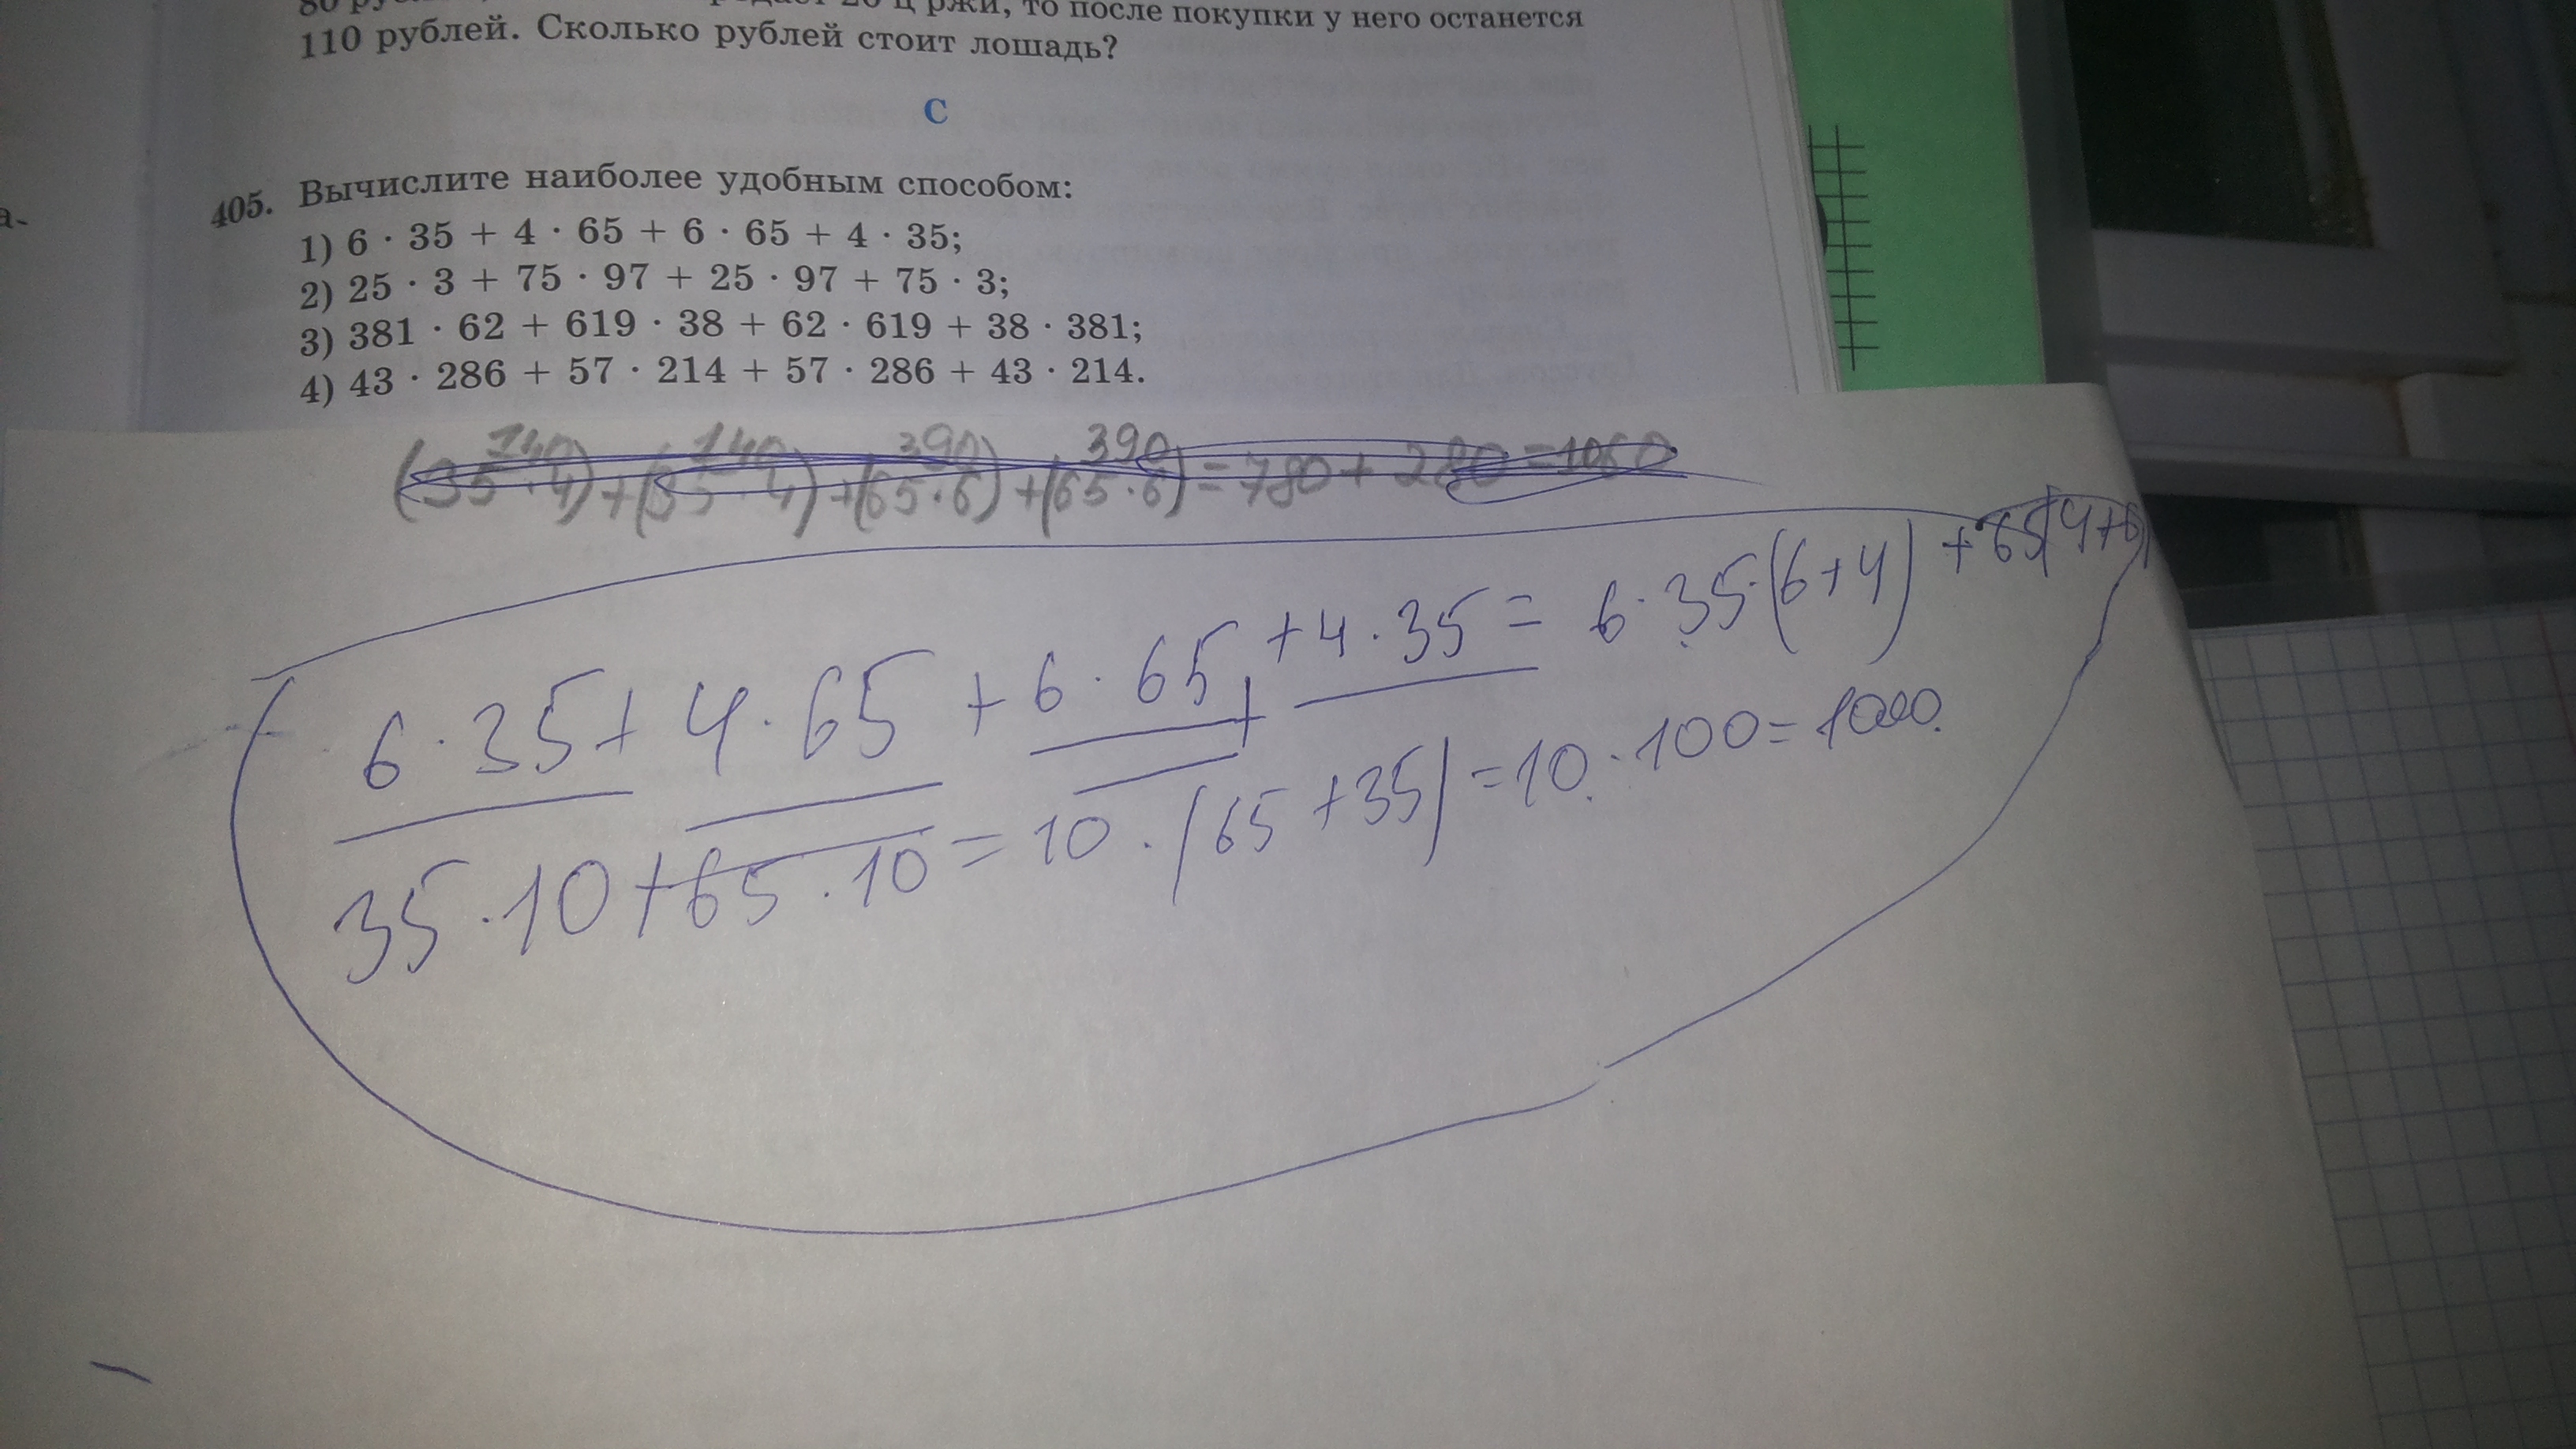 ржи, то после покупки у него останется
110 рублей. Сколько рублей стоит лошадь?
С
а-
405. Вычислите наиболее удобным способом:
1) 6 · 35 + 4 · 65 + 6 · 65 + 4 · 35;
2) 25 · 3 + 75 · 97 + 25 · 97 + 75 · 3;
3) 381 · 62 + 619 · 38 + 62 · 619 + 38 · 381;
4) 43 · 286 + 57 · 214 + 57 · 286 + 43 · 214.
140 140 390 390
(35·4)+(35·4)+(65·6)+(65·6)=780+280=1060
6·35+4·65+6·65+4·35=6·35·(6+4)+65(4+6)
35·10+65·10=10·(65+35)=10·100=1000.